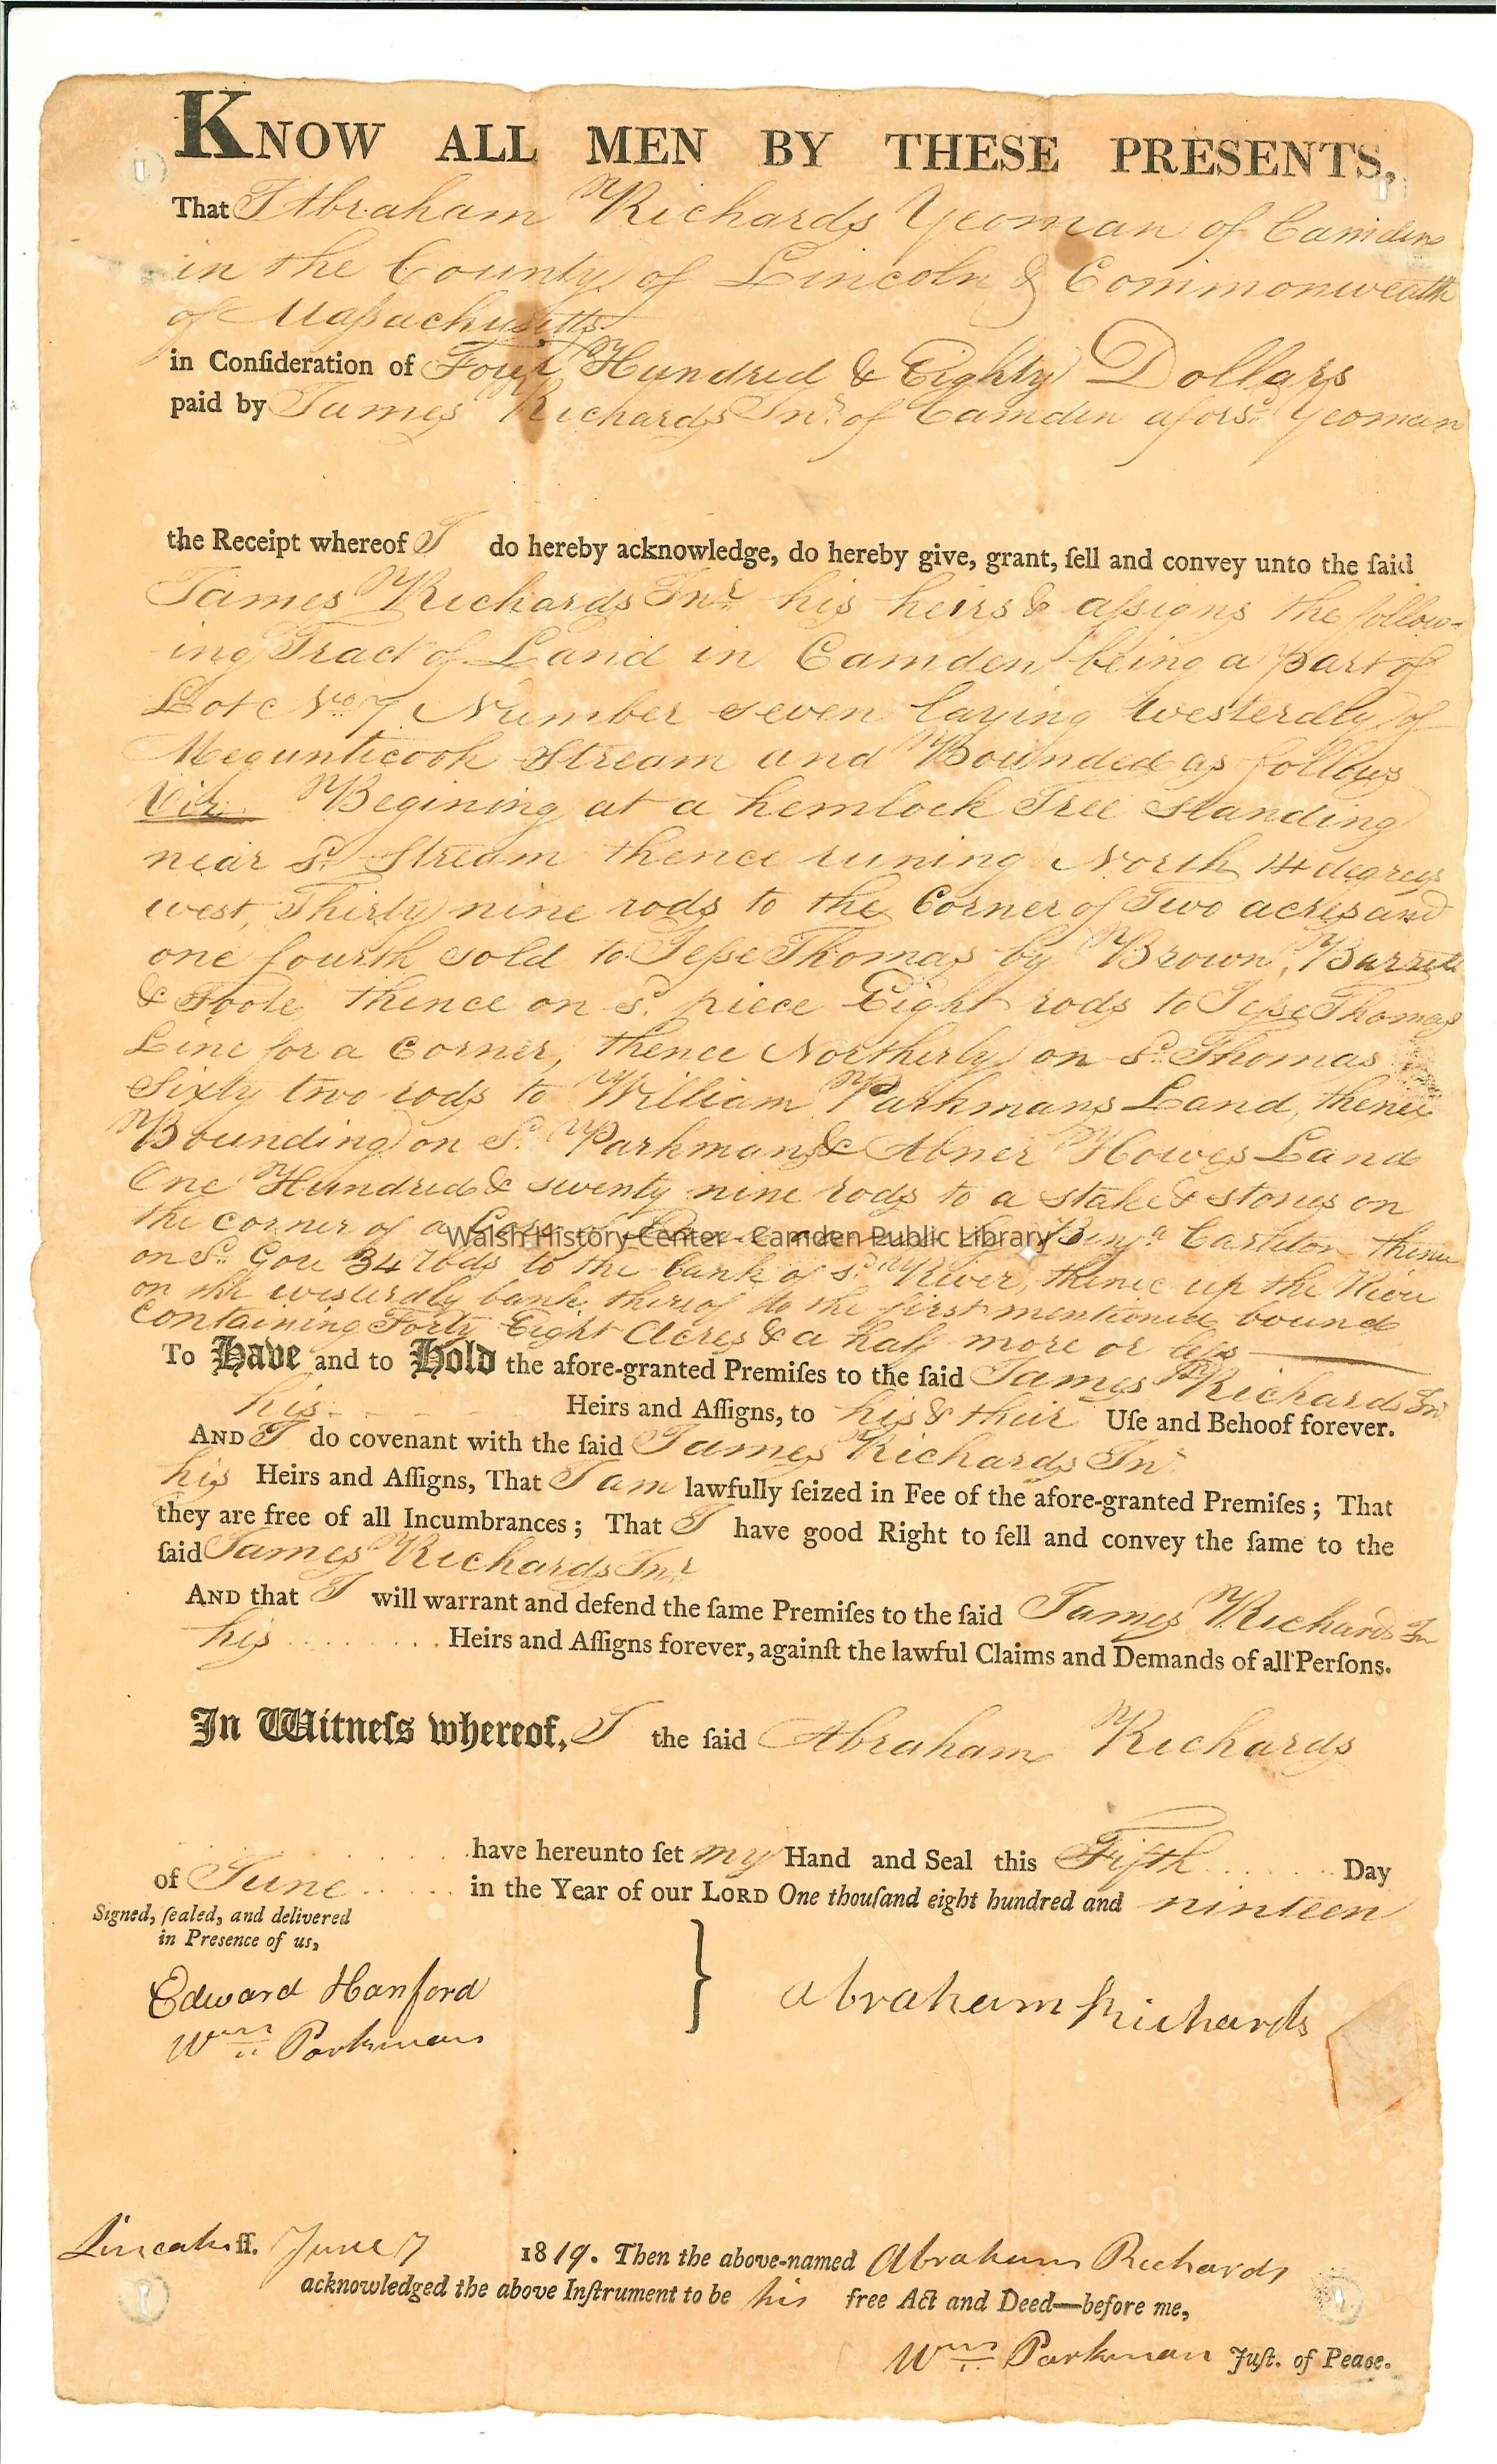 KNOW ALL MEN BY THESE PRESENTS,
That I Abraham Richards Yeoman of Camden
in the County of Lincoln & Commonwealth
of Maſsachusetts
in Conſideration of Four Hundred & Eighty Dollars
paid by James Richards Jnr. of Camden afors.d Yeoman
the Receipt whereof I do hereby acknowledge, do hereby give, grant, ſell and convey unto the ſaid
James Richards Jnr. his heirs & aſsigns the follow-
ing Tract of Land in Camden being a part of
Lot No. 7 Number seven laying Westerdly of
Megunticook Stream and Bounded as follows
Viz. Begining at a hemlock Tree standing
near Sd. Stream thence runing North 14 degrees
west, Thirty nine rods to the Corner of Two acres and
one fourth sold to Jeſse Thomas by Brown, Barrett
& Foote thence on Sd. piece Eight rods to Jeſse Thomas
Line for a Corner, thence Northerly on Sd. Thomas
Sixty two rods to William Parkmans Land, thence
Bounding on Sd. Parkmans & Abner Howes Land
One Hundred & seventy nine rods to a stake & stones on
the corner of a Gore of Benja. Carleton thence
on Sd. Gore 34 rods to the bank of Sd. River, thence up the River
on the westerdly bank thereof to the first mentioned bound
Containing Forty Eight Acres & a half more or leſs
Walsh History Center - Camden Public Library
To Have and to Hold the afore-granted Premiſes to the ſaid James Richards Jnr.
his Heirs and Aſſigns, to his & their Uſe and Behoof forever.
AND I do covenant with the ſaid James Richards Jnr.
his Heirs and Aſſigns, That I am lawfully ſeized in Fee of the afore-granted Premiſes; That
they are free of all Incumbrances; That I have good Right to ſell and convey the ſame to the
ſaid James Richards Jnr.
AND that I will warrant and defend the ſame Premiſes to the ſaid James Richards Jn
his ........ Heirs and Aſſigns forever, againſt the lawful Claims and Demands of all Perſons.
In Witneſs whereof, I the ſaid Abraham Richards
have hereunto ſet my Hand and Seal this Fifth ...... Day
of June ..... in the Year of our LORD One thouſand eight hundred and ninteen
Signed, ſealed, and delivered
in Presence of us,
Edward Hanford
Wm. Parkman
} Abraham Richards
Lincoln ſſ. June 7 1819. Then the above-named Abraham Richards
acknowledged the above Inſtrument to be his free Act and Deed—before me,
Wm. Parkman Juſt. of Peace.